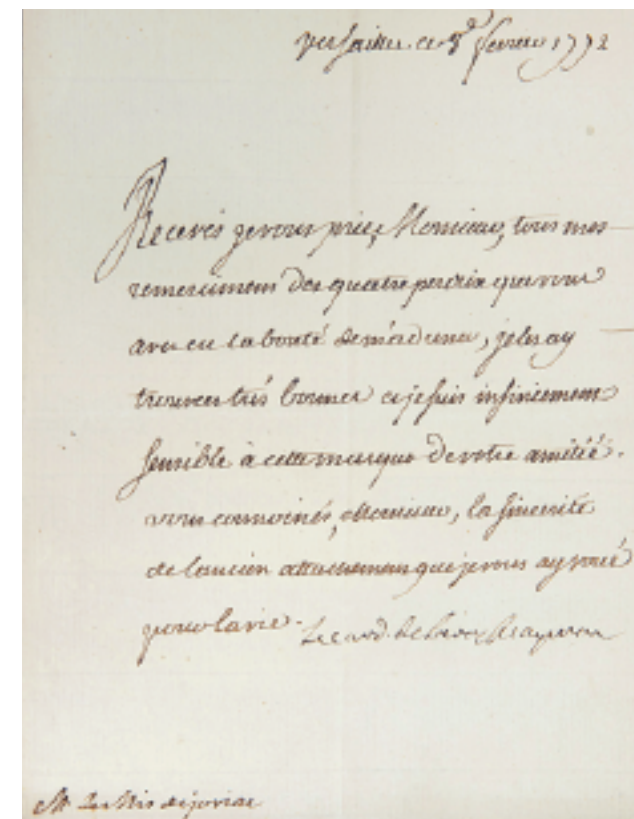 versailles ce 8 fevrier 1772
Recevés je vous prie, Monsieur, tous mes
remercimens des quatre perdrix que vous
avez eu la bonté de m'adresser, je les ay
trouvées très bonnes et je suis infiniement
sensible à cette marque de votre amitié.
vous connoissés, Monsieur, la sincerité
de l'ancien attachement que je vous ay voué
pour la vie.
Le card. de la Roche aymon
M. Le Mis de